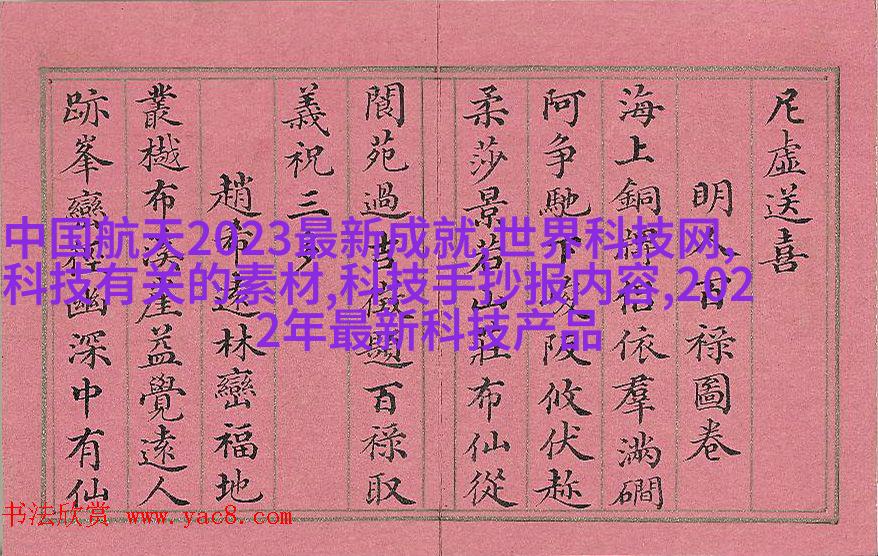 虛送喜
明人百祿圖卷
海上銅牌俗依羣滿磵
阿爭馳下峻阪攸伏趂
柔莎景若山莊布仙從
閬苑過吉徵題百祿取
義祝三多
趙布遠林巒福地
叢樾布溪崖益覺遠人
跡峯巒徑幽深中有仙
中国航天2023最新成就,世界科技网,
科技有关的素材,科技手抄报内容,202
2年最新科技产品
书法欣赏 www.yac8.com